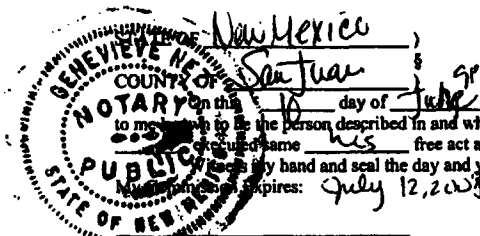 STATE OF New Mexico )
§
COUNTY OF San Juan )
On this 10 day of
to me known to be the person described in and wh
executed same his free act a
my hand and seal the day and y
My Commission Expires: July 12,
GENEVIEVE NEZ
NOTARY
PUBLIC
STATE OF NEW MEXICO